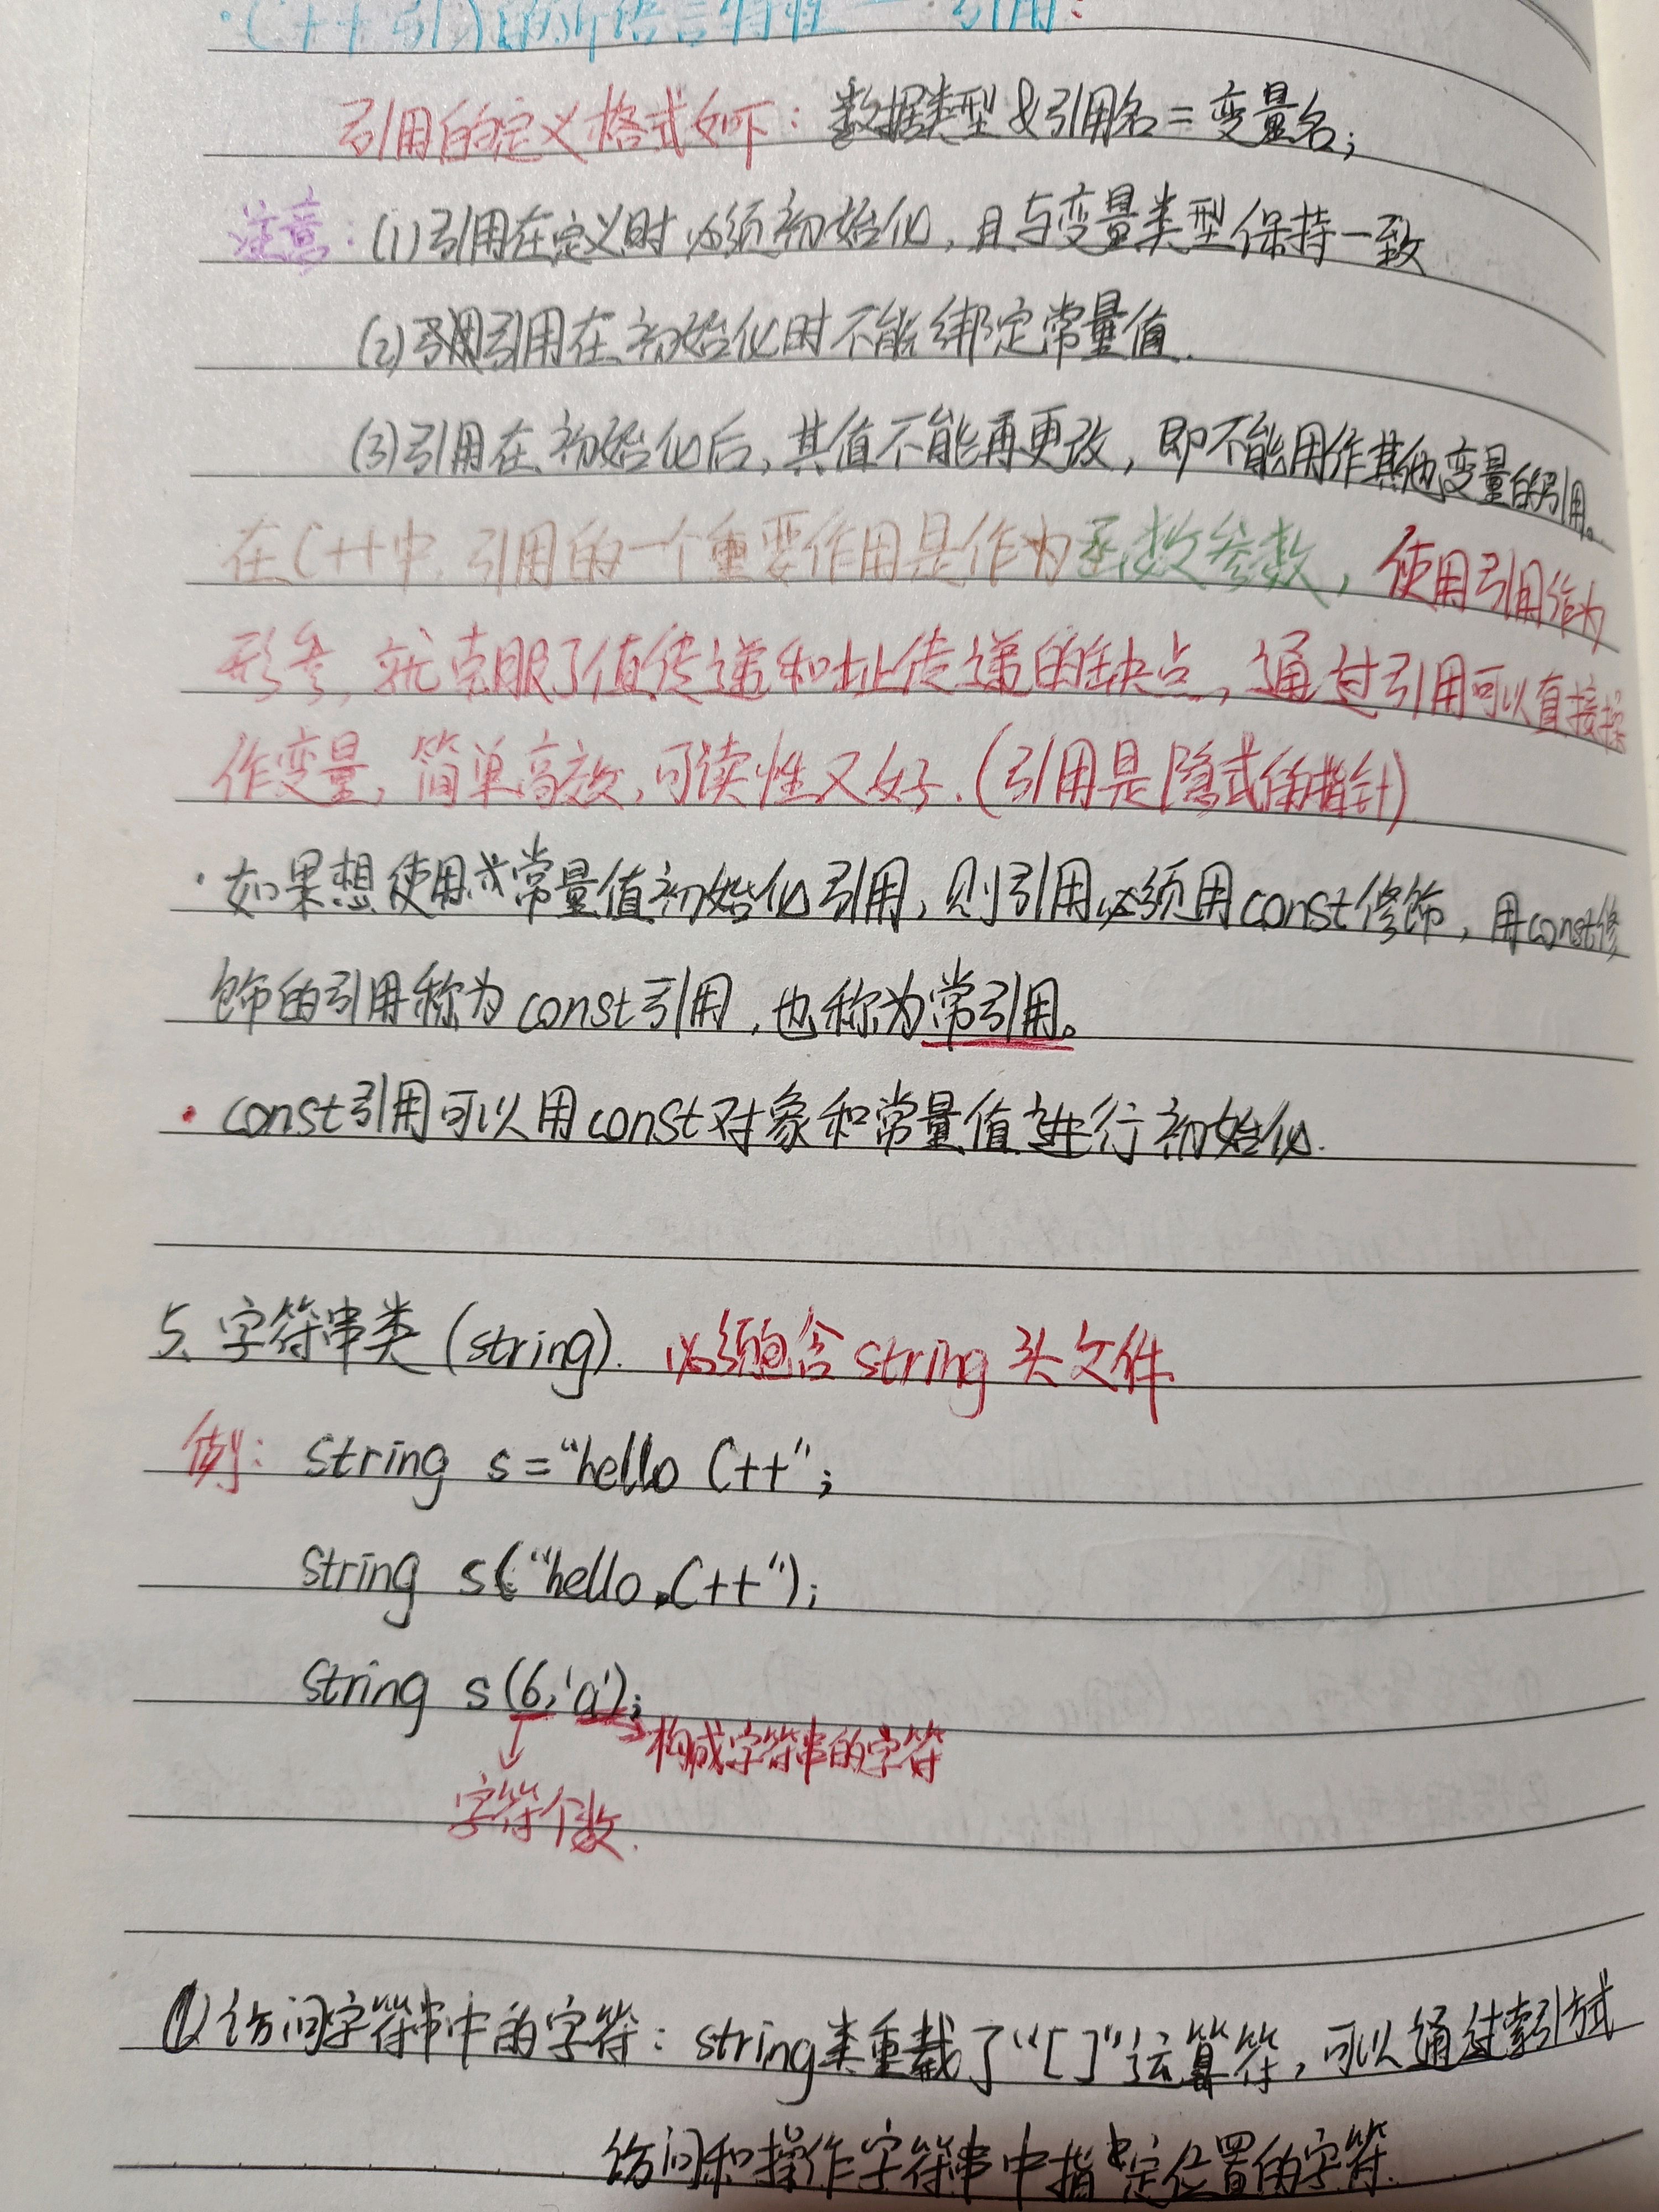 ·C++引入的新语言特性——引用:
引用的定义格式如下: 数据类型 &引用名 = 变量名;
注意: (1)引用在定义时必须初始化, 且与变量类型保持一致
(2)引用在初始化时不能绑定常量值.
(3)引用在初始化后, 其值不能再更改, 即不能用作其他变量的引用。
在C++中, 引用的一个重要作用是作为函数参数, 使用引用作为
形参, 就克服了值传递和址传递的缺点, 通过引用可以直接操
作变量, 简单高效, 可读性又好. (引用是隐式的指针)
·如果想使用常量值初始化引用, 则引用必须用const修饰, 用const修
饰的引用称为const引用, 也称为常引用。
·const引用可以用const对象和常量值进行初始化.
5、字符串类 (string). 必须包含string头文件.
例: string s="hello C++";
string s("hello,C++");
string s(6,'a');
构成字符串的字符
字符个数.
(1)访问字符串中的字符: string类重载了"[]"运算符, 可以通过索引方式
访问和操作字符串中指定位置的字符.